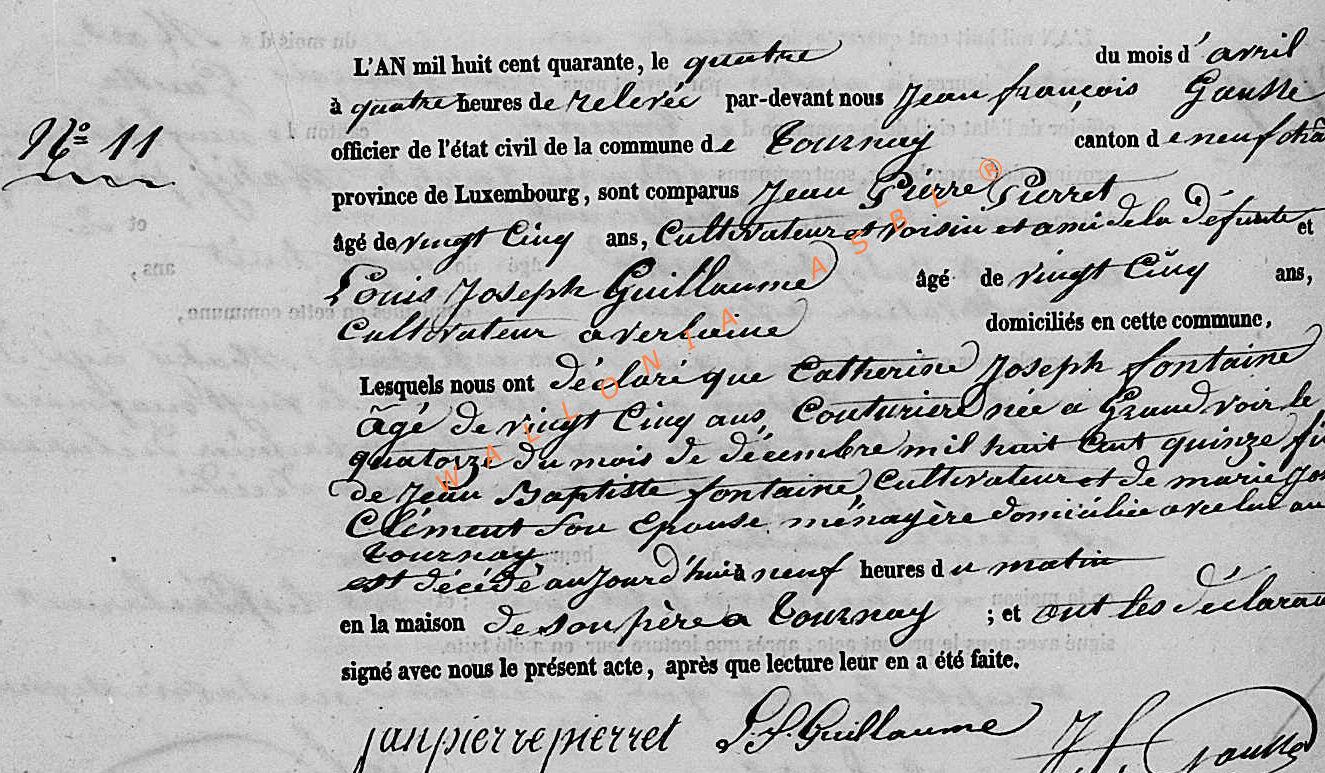 L'AN mil huit cent quarante, le quatre du mois d'avril
à quatre heures de relevée par-devant nous Jean françois Gausse
N° 11
officier de l'état civil de la commune de Tournay canton de neufchâ
province de Luxembourg, sont comparus Jean Pierre Pierret
âgé de vingt Cinq ans, Cultivateur et voisin et ami de la Défunte et
Louis Joseph Guillaume âgé de vingt Cinq ans,
Cultivateur a verlaine domiciliés en cette commune,
Lesquels nous ont déclaré que Catherine Joseph fontaine
âgé de vingt Cinq ans, Couturiere née a Grand voir le
quatorze du mois de décembre mil huit Cent quinze fi
de Jean Baptiste fontaine, Cultivateur et de marie Jos
Clément Son Epouse ménagère domiciliée avec lui au
Tournay
est décédé aujourd'hui à neuf heures du matin
en la maison de son père a Tournay ; et ont les déclaran
signé avec nous le présent acte, après que lecture leur en a été faite.
janpierrepierret L. J. Guillaume J. f. Gausse
WALLONIA ASBL ®